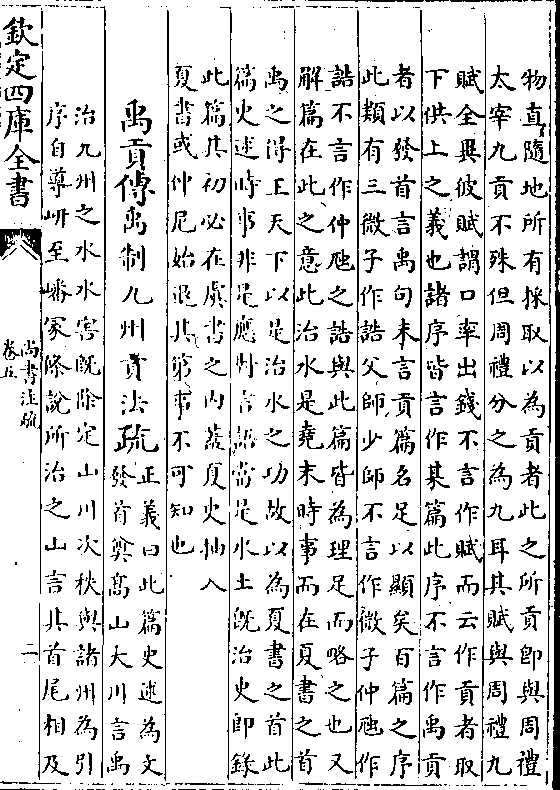 物直隨地所有採取以為貢者此之所貢即與周禮
太宰九貢不殊但周禮分之為九耳其賦與周禮九
賦全異彼賦謂口率出錢不言作賦而云作貢者取
下供上之義也諸序皆言作某篇此序不言作禹貢
者以發首言禹句末言貢篇名足以顯矣百篇之序
此類有三微子作誥父師少師不言作微子仲虺作
誥不言作仲虺之誥與此篇皆為理足而略之也又
解篇在此之意此治水是堯末時事而在夏書之首
禹之得王天下以是治水之功故以為夏書之首此
篇史述時事非是應對言語當是水土既治史即錄
此篇其初必在虞書之內蓋夏史抽入
夏書或仲尼始退其第事不可知也
禹貢傳禹制九州貢法疏正義曰此篇史述為文
發首奠高山大川言禹
治九州之水水害既除定山川次秩與諸州為引
序自導岍至嶓冢條說所治之山言其首尾相及
欽定四庫全書
尚書注疏
卷五
二